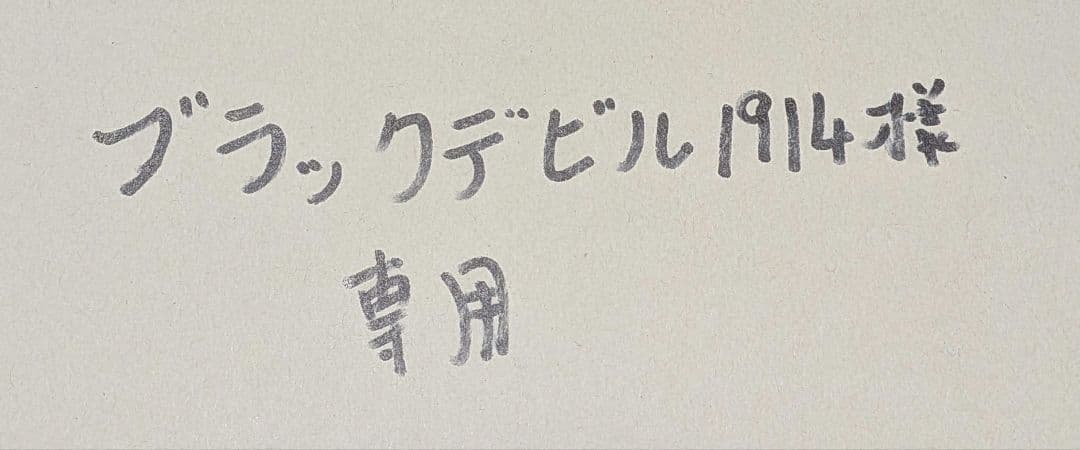 ブラックデビル1914様
専用